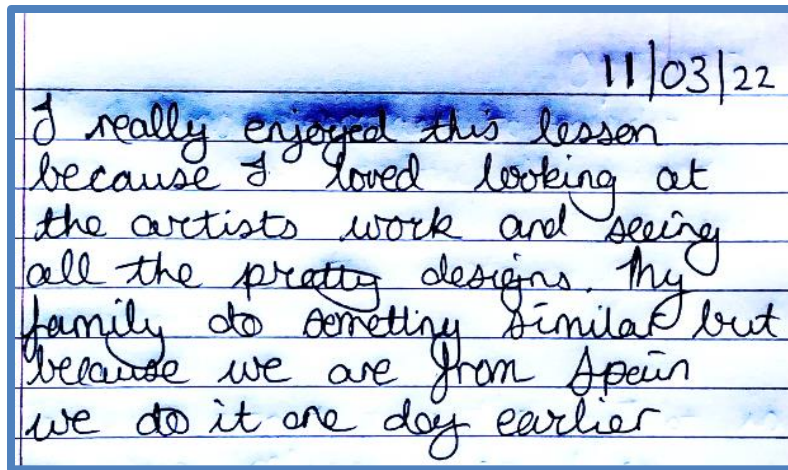 11/03/22
I really enjoyed this lesson
because I loved looking at
the artists work and seeing
all the pretty designs. My
family do something similar but
because we are from Spain
we do it one day earlier